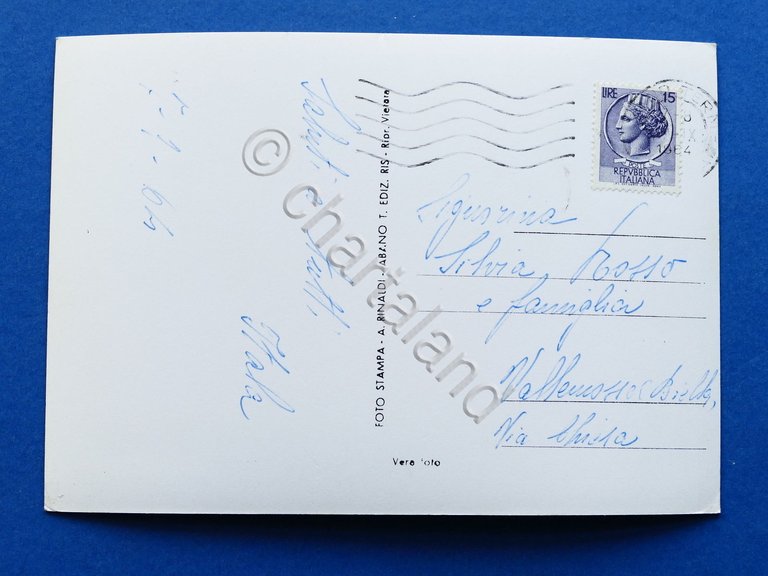 5-9-64
Saluti a tutti
Itala
FOTO STAMPA - A. RINALDI - ABANO T. EDIZ. RIS - Ripr. Vietata
Vera foto
LIRE 15
POSTE
REPVBBLICA
ITALIANA
1964
Signorina
Silvia Rosso
e famiglia
Vallemosso (Biella)
Via Chiesa
© chartaland